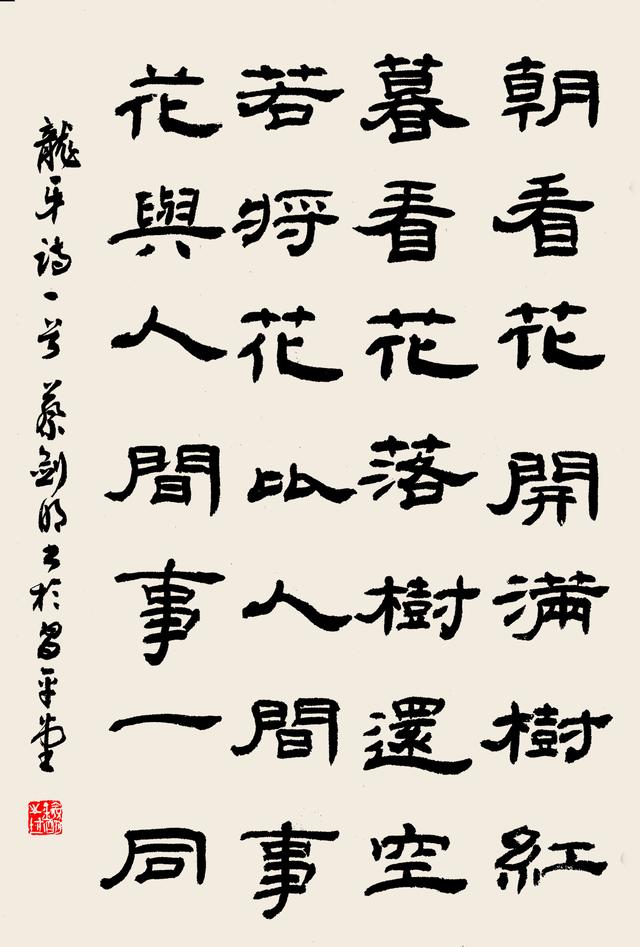 朝看花開滿樹紅
暮看花落樹還空
若將花比人間事
花與人間事一同
龍牙詩一首 蔡劍明书於昌平堂